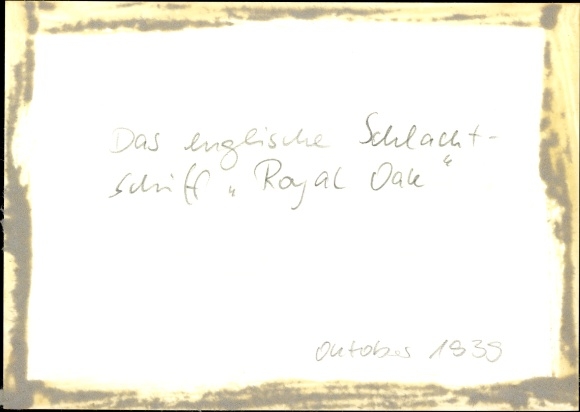 Das englische Schlacht-
schiff „Royal Oak“
Oktober 1939